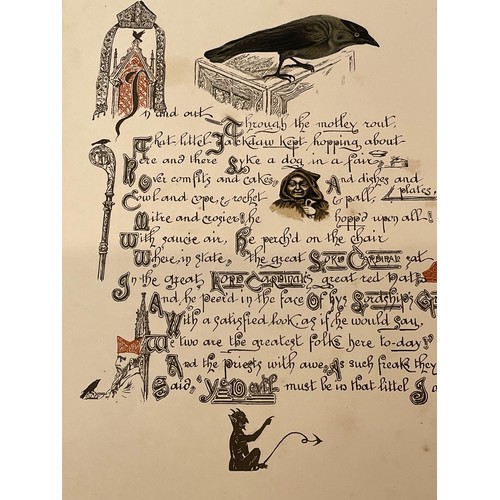 In and out Through the motley rout,
That littel Jackdaw kept hopping about
Here and there Lyke a dog in a fair,
Over comfits and cakes, And dishes and plates,
Cowl and cope, & rochet & pall,
Mitre and crosier! he hopp'd upon all!
With saucie air, He perch'd on the chair
Where, in state, the great Lord Cardinal sat
In the great Lord Cardinal's great red hat;
And he peer'd in the face Of hys Lordship's
With a satisfied look, as if he would say,
We two are the greatest folks here to-day!
And the priests with awe, As such freaks they
Said, "Ye Devil must be in that littel